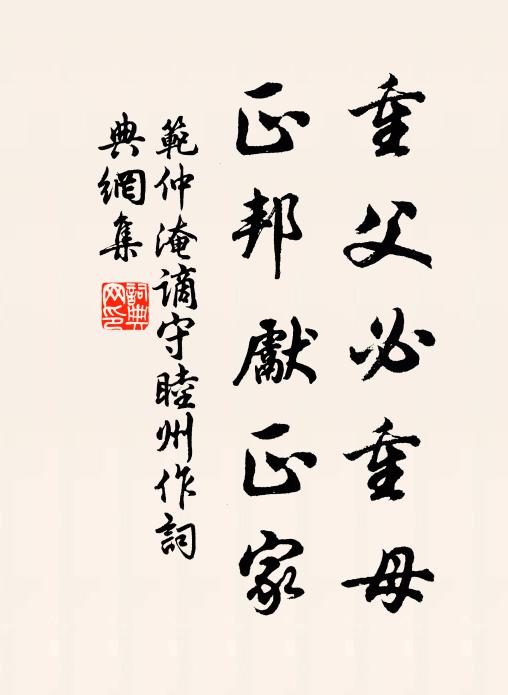 重父必重母
正邦獻正家
範仲淹謫守睦州作詞
典網集
詞典網印